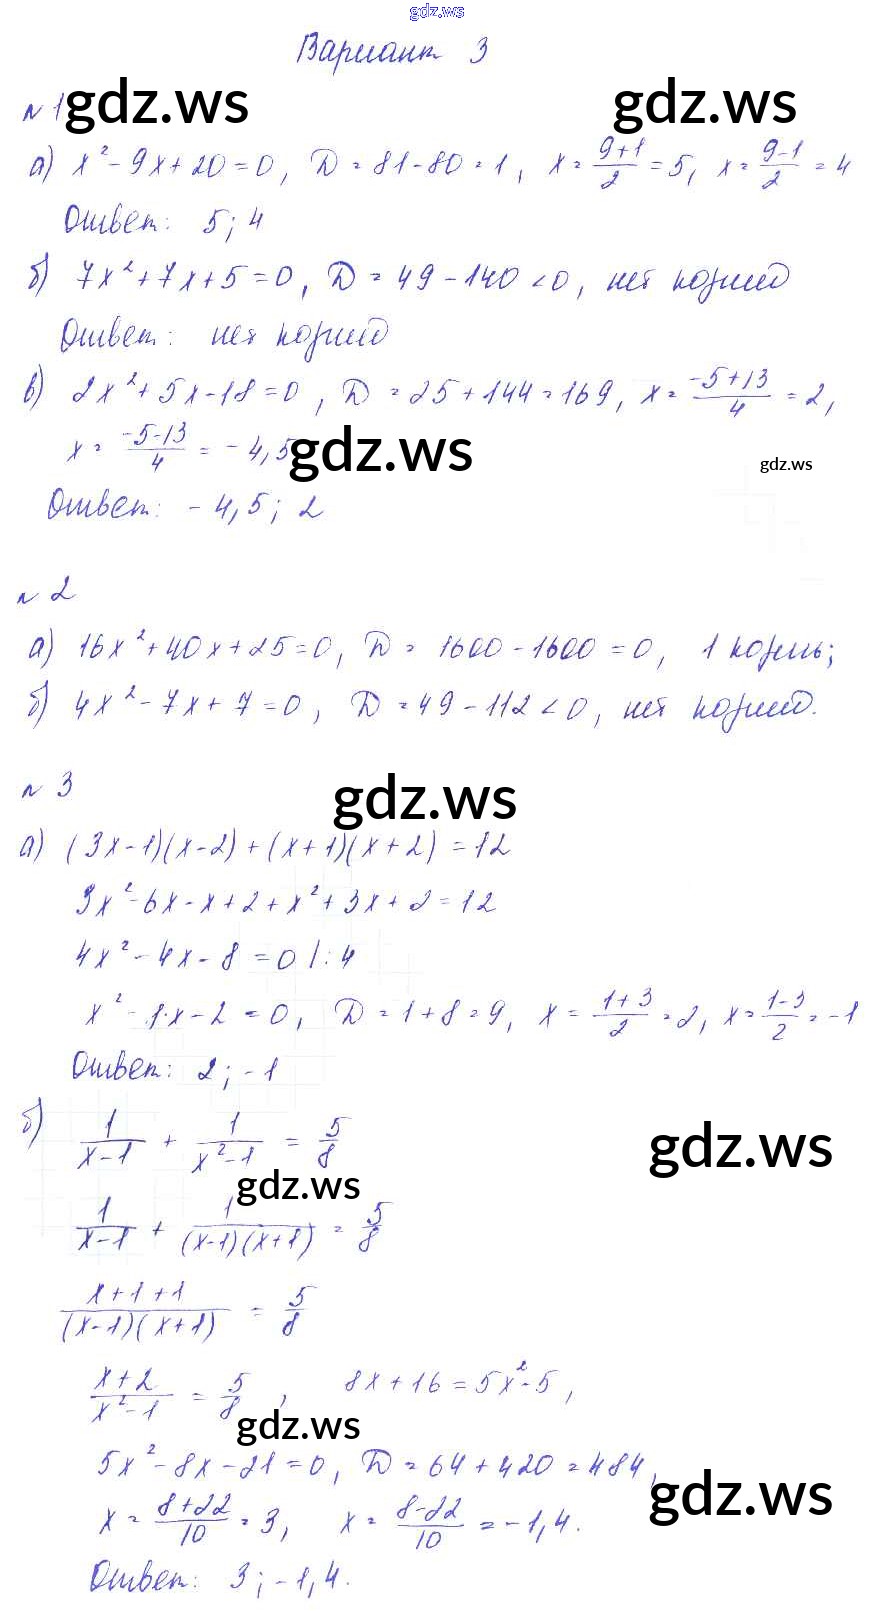 gdz.ws
Вариант 3
№ 1 gdz.ws gdz.ws
а) x² - 9x + 20 = 0, D = 81 - 80 = 1, x = (9+1)/2 = 5, x = (9-1)/2 = 4
Ответ: 5; 4
б) 7x² + 7x + 5 = 0, D = 49 - 140 < 0, нет корней
Ответ: нет корней
в) 2x² + 5x - 18 = 0, D = 25 + 144 = 169, x = (-5+13)/4 = 2,
x = (-5-13)/4 = -4,5 gdz.ws
gdz.ws
Ответ: -4,5; 2
№ 2
а) 16x² + 40x + 25 = 0, D = 1600 - 1600 = 0, 1 корень;
б) 4x² - 7x + 7 = 0, D = 49 - 112 < 0, нет корней.
№ 3
gdz.ws
а) (3x-1)(x-2) + (x+1)(x+2) = 12
3x² - 6x - x + 2 + x² + 3x + 2 = 12
4x² - 4x - 8 = 0 |:4
x² - 1·x - 2 = 0, D = 1 + 8 = 9, x = (1+3)/2 = 2, x = (1-3)/2 = -1
Ответ: 2; -1
б) 1/(x-1) + 1/(x²-1) = 5/8
gdz.ws
gdz.ws
1/(x-1) + 1/((x-1)(x+1)) = 5/8
(x+1+1)/((x-1)(x+1)) = 5/8
(x+2)/(x²-1) = 5/8, 8x + 16 = 5x² - 5,
gdz.ws
5x² - 8x - 21 = 0, D = 64 + 420 = 484,
gdz.ws
x = (8+22)/10 = 3, x = (8-22)/10 = -1,4.
Ответ: 3; -1,4.